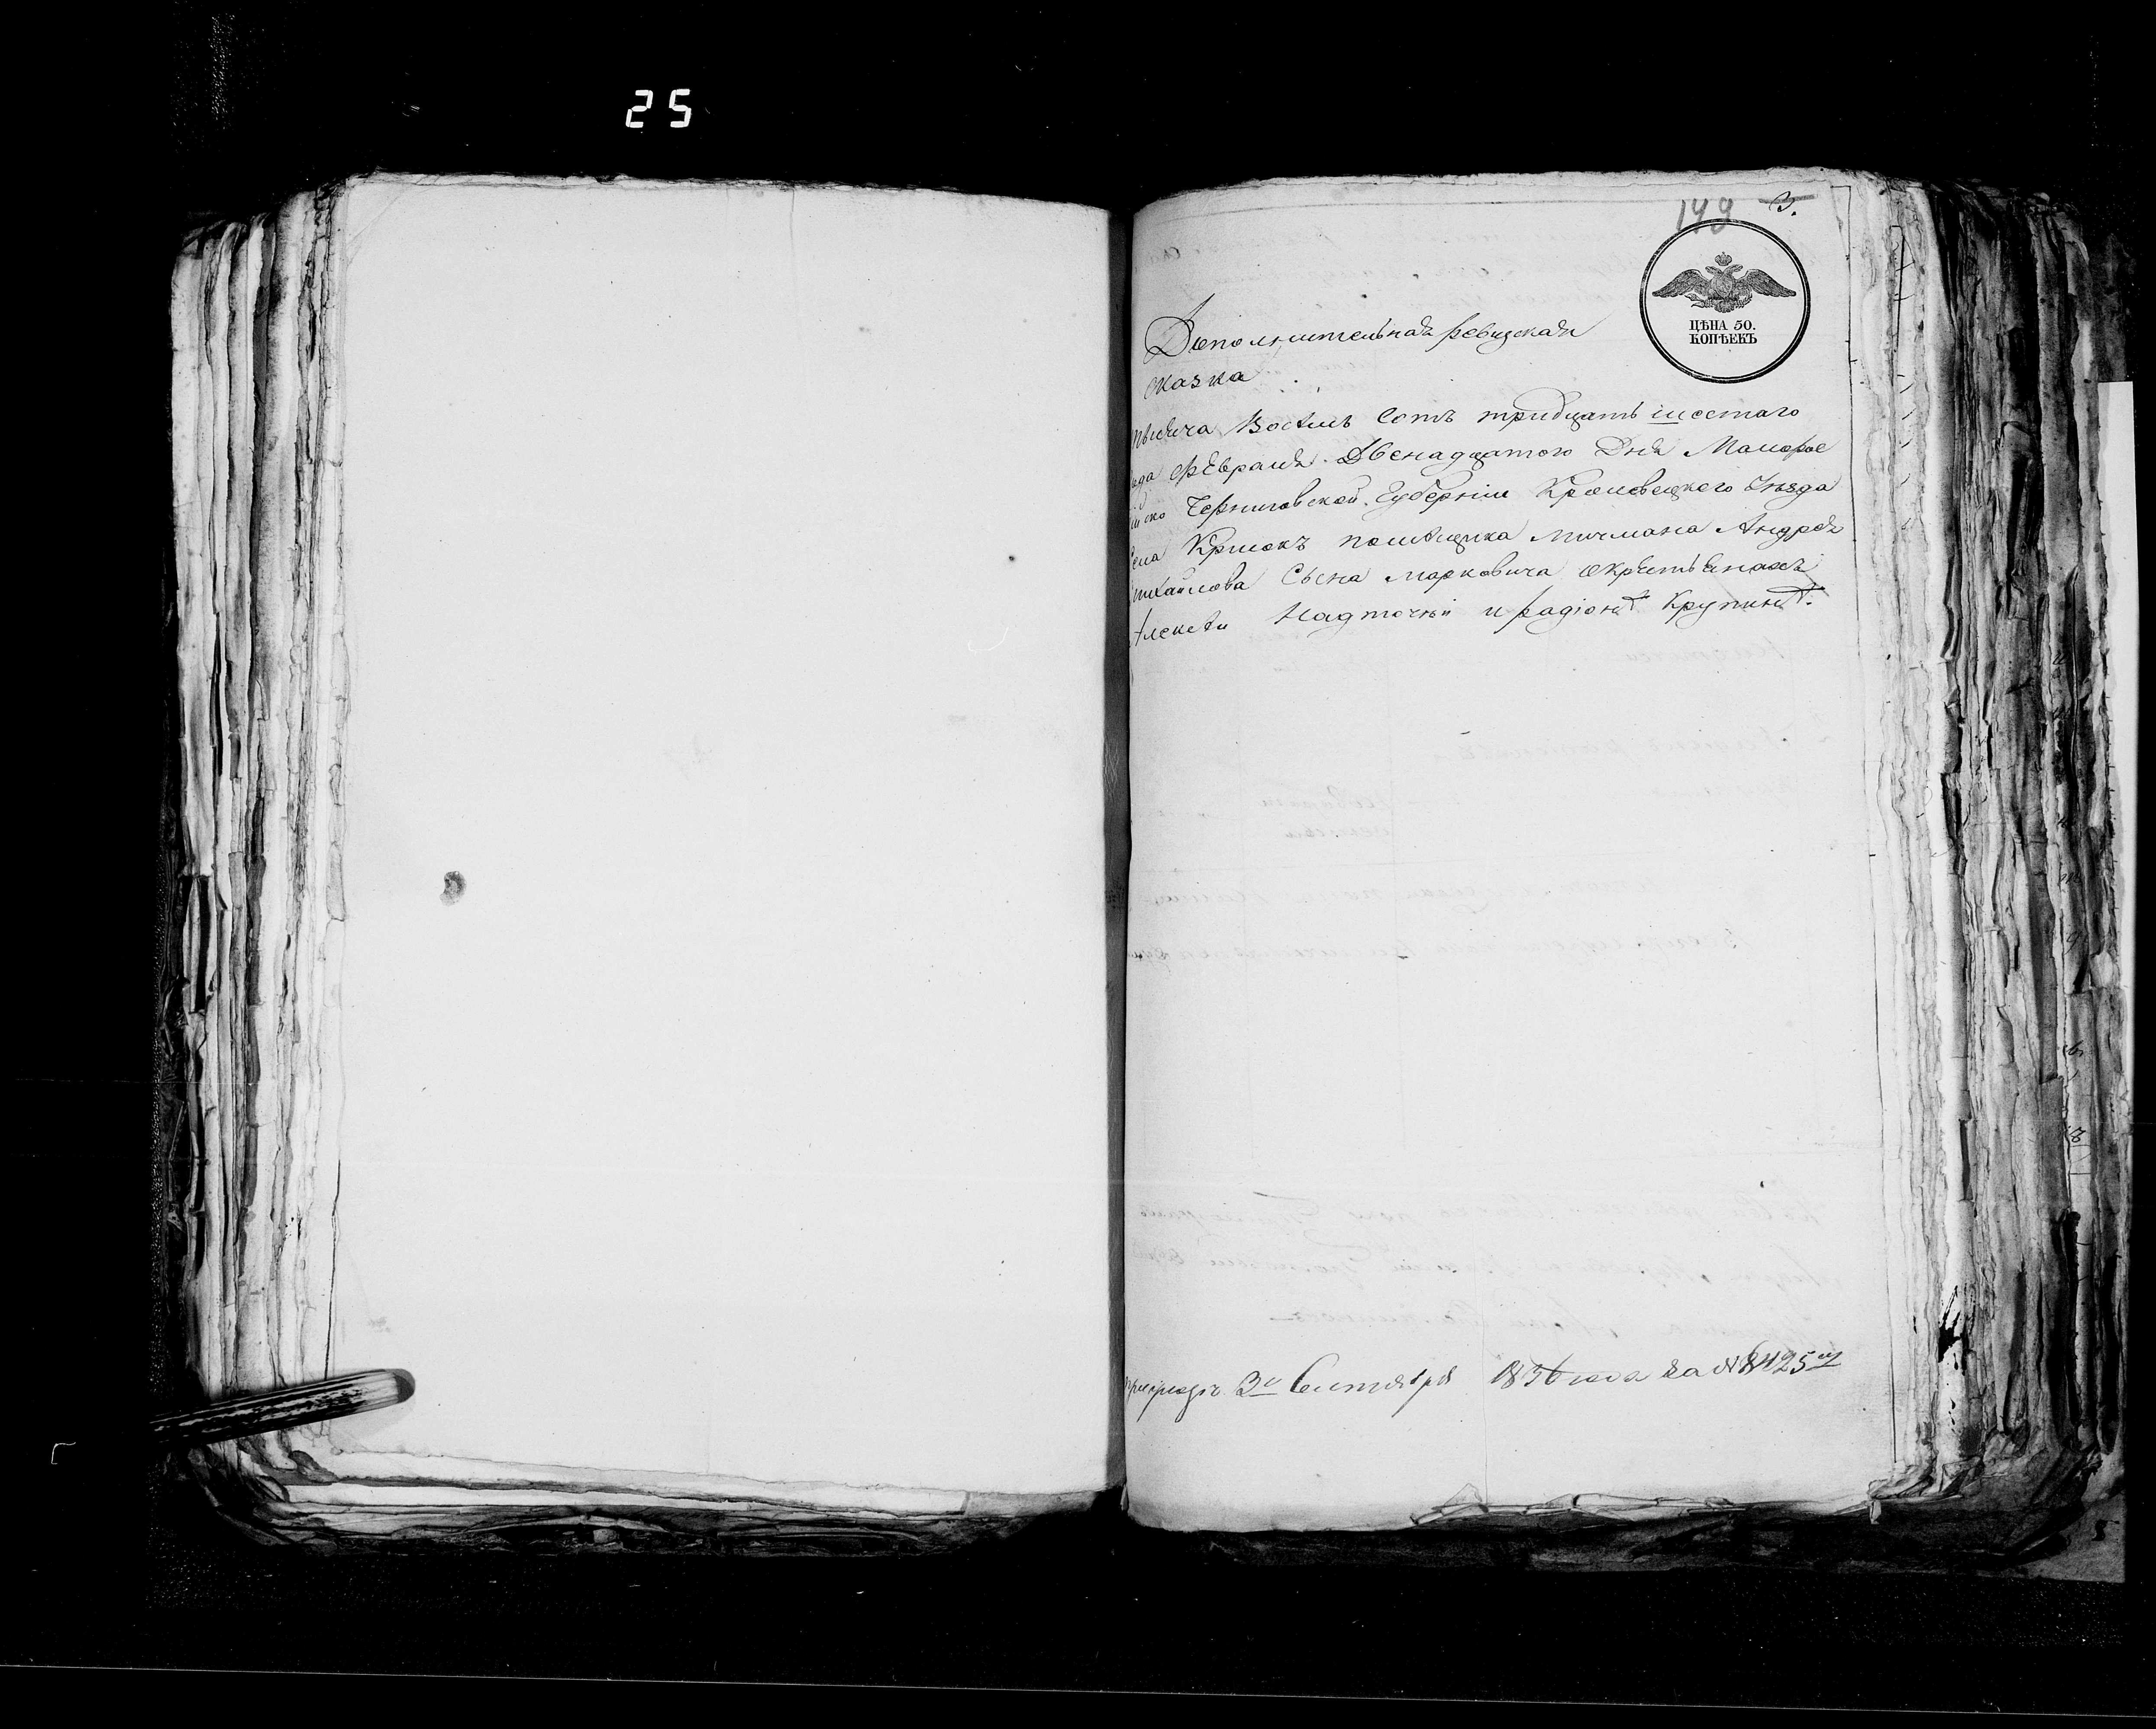 25
149 3.
ЦѢНА 50.
КОПѢЕКЪ
Дополнительная ревизская
сказка
тысяча Восемь Сотъ тридцать шестаго
ода Февраля Двенадцатого Дня Малорос
ийско Черниговской Губерніи Кролевецкого Уезда
села помещика мичмана Андрея
михайлова Сына марковича окрестьянахъ
Алексеи Надточьи и радіоне Крупине.
3го Сентября 1836 года за № 8425